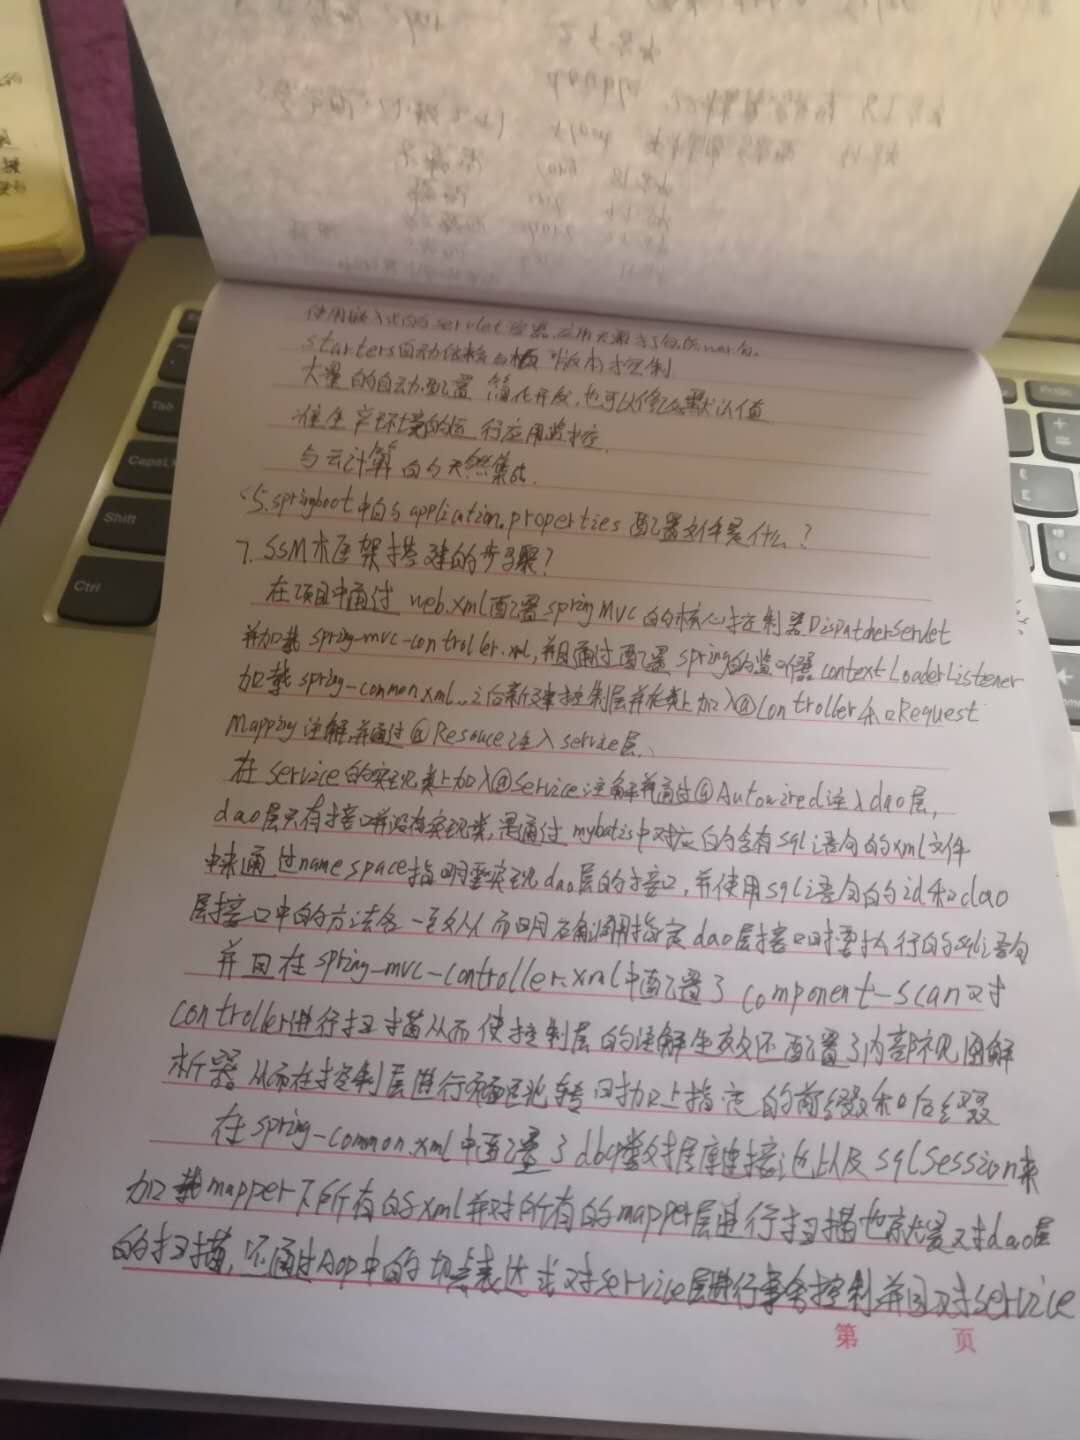 使用嵌入式的servlet容器,应用无需打包成war包.
starters自动依赖与版本控制
大量的自动配置 简化开发,也可以修改默认值.
准生产环境的运行应用监控.
与云计算的天然集成.
5.springboot中的application.properties配置文件是什么?
7.SSM框架搭建的步骤?
在项目中通过web.xml配置spring MVC的核心控制器DispatcherServlet
并加载spring-mvc-controller.xml,并且通过配置spring的监听器ContextLoaderListener
加载spring-common.xml.之后新建控制层并在类上加入@Controller和Request
Mapping注解,并通过@Resouce注入service层、
在service的实现类上加入@Service注解并通过@Autowired注入dao层,
dao层只有接口并没有实现类,是通过mybatis中对应的含有sql语句的xml文件
中来通过namespace指明要实现dao层的接口,并使用sql语句的id和dao
层接口中的方法名一致从而明确调用指定dao层接口时要执行的sql语句
并且在spring-mvc-controller.xml中配置了component-scan对
controller进行扫描从而使控制层的注解生效还配置了内部视图解
析器从而在控制层进行页面跳转时加上指定的前缀和后缀
在spring-common.xml中配置了数据库连接池以及sqlSession来
加载mapper下所有的xml并对所有的mapper层进行扫描也就是对dao层
的扫描,还通过Aop中的切点表达式对service层进行事务控制并且对service
第 页